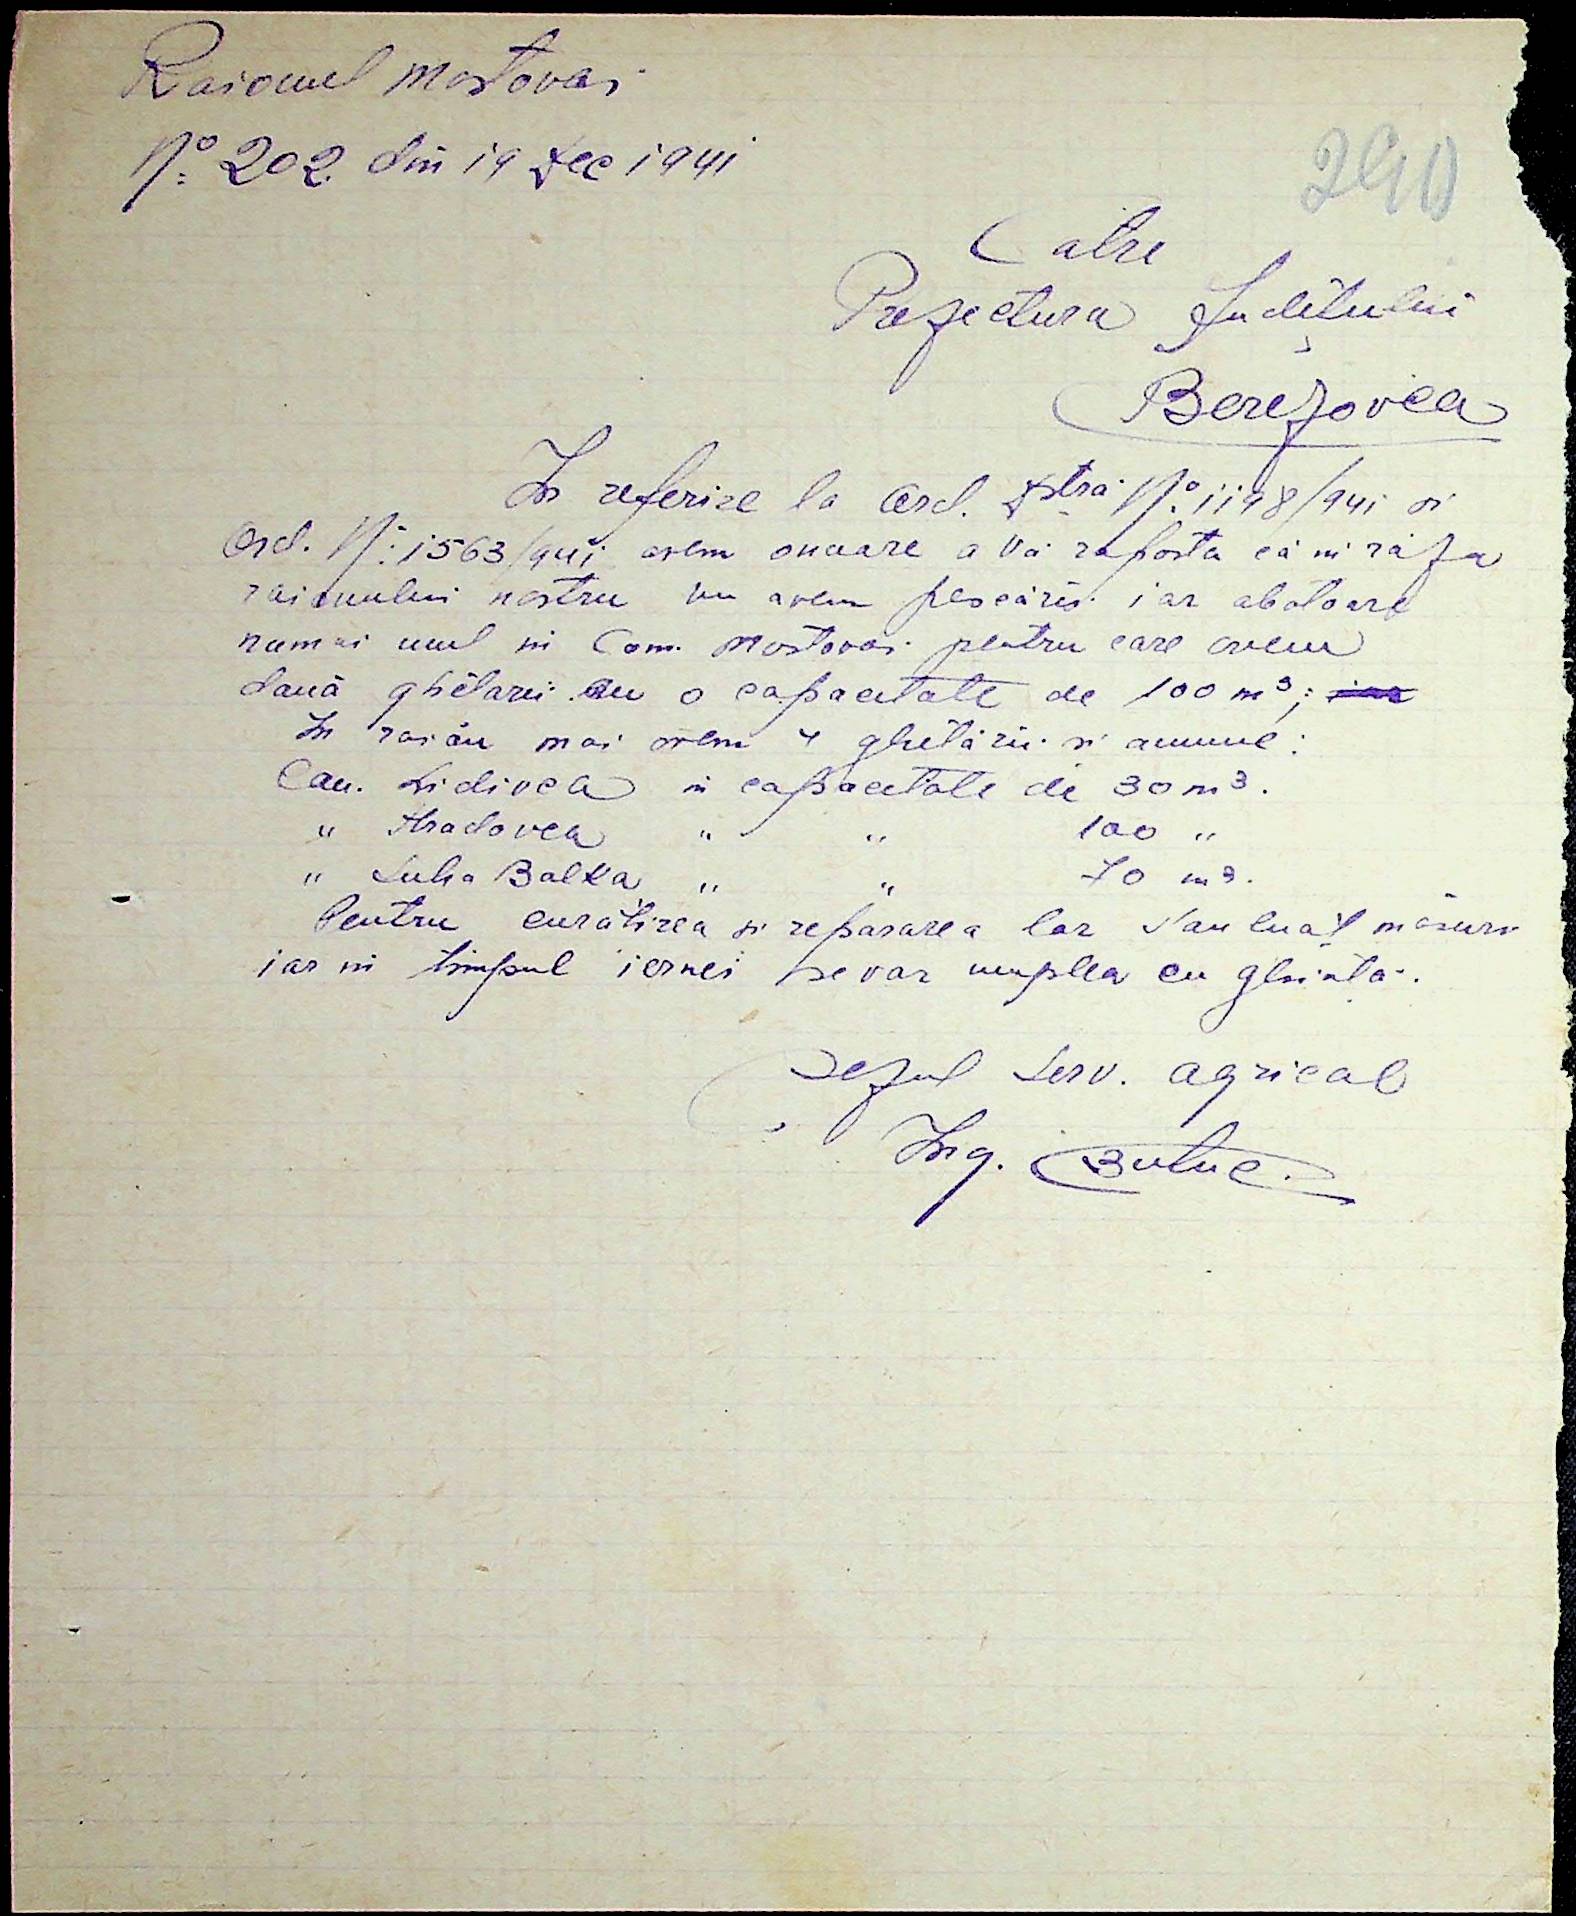 Raionul Mostovai
No. 202 din 19 Dec 1941
290
Catre
Prefectura Judeţului
Berezovca
In referire la Ord. Dstra No. 1198/941 si
Ord. No. 1563/941 avem onoare a Vă raporta că in raza
raionului nostru nu avem pescării iar abatoare
numai unul in Com. Mostovoi pentru care avem
două ghetarii cu o capacitate de 100 m³;
In raion mai avem 4 ghetării si anume:
Com. Lidivca in capacitate de 30 m³.
" Hradovca " " 100 "
" Suha Balka " " 70 m³.
Pentru curăţirea si repararea lor s'au luat măsuri
iar in timpul iernei se vor umplea cu ghiaţă.
Şeful Serv. Agricol
Ing. Butuc.